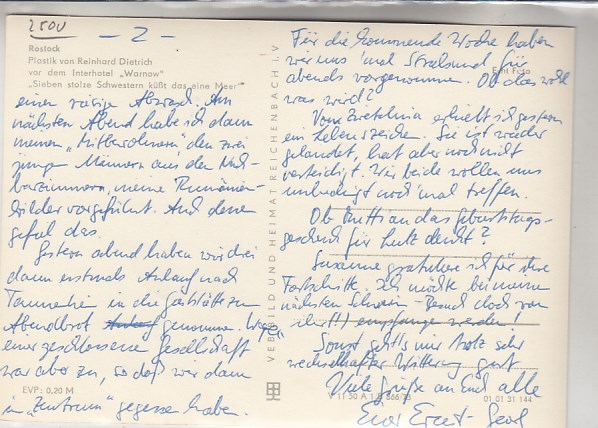 2500
- 2 -
Rostock
Plastik von Reinhard Dietrich
vor dem Interhotel „Warnow"
„Sieben stolze Schwestern küßt das eine Meer"
einen Abwasch. Am
nächsten Abend habe ich dann
meinen „Mitbewohnern", den zwei
jungen Männern aus den Nach-
barzimmern, meine Rumänien-
bilder vorgeführt. Auch denen
gefiel das.
Gestern abend haben wir drei
dann erstmals Anlauf nach
in die Gaststätte zum
Abendbrot genommen. Wegen
einer geschlossenen Gesellschaft
war aber zu, so daß wir dann
im „Zentrum" gegessen haben.
EVP: 0,20 M
VEB BILD UND HEIMAT REICHENBACH I. V.
Für die kommende Woche haben
wir uns 'mal Stralsund für
abends vorgenommen. Ob das wohl
Echt Foto
was wird?
Von erhielt ich gestern
ein Lebenszeichen. Sie ist wieder
gelandet, hat aber noch nicht
verteidigt. Wir beide wollen uns
unbedingt noch 'mal treffen.
Ob Mutti an das Geburtstags-
geschenk für denkt?
Susanne gratuliere ich für ihre
Fortschritte. Ich möchte bei meinem
nächsten Schwerin-Besuch doch von
ihr (!!) empfangen werden!
Sonst geht's mir trotz sehr
wechselhafter Witterung gut
Viele Grüße an Euch alle
01 01 31 144
Euer Ernst-